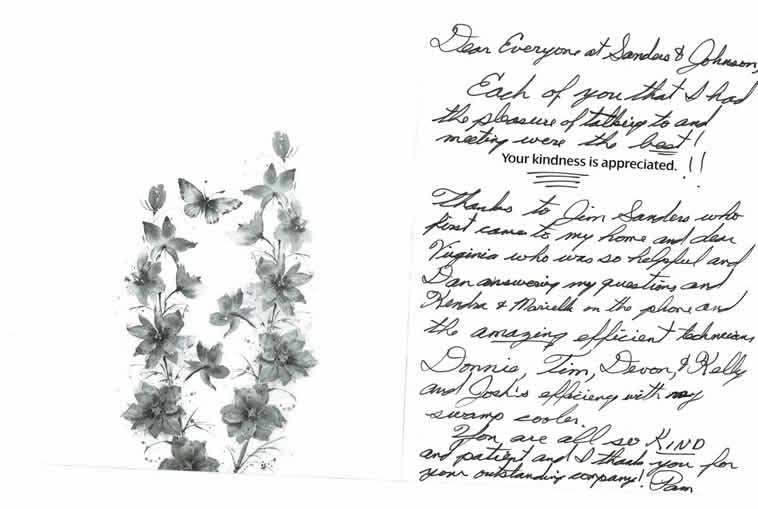 Dear Everyone at Sanders & Johnson,
Each of you that I had
the pleasure of talking to and
meeting were the best!
Your kindness is appreciated. !!
Thanks to Jim Sanders who
first came to my home and dear
Virginia who was so helpful and
Dan answering my questions and
Kendra & Maricella on the phone and
the amazing efficient technicians
Donnie, Tim, Devon, & Kelly
and Josh's efficiency with my
swamp cooler.
You are all so KIND
and patient and I thank you for
your outstanding company! Pam